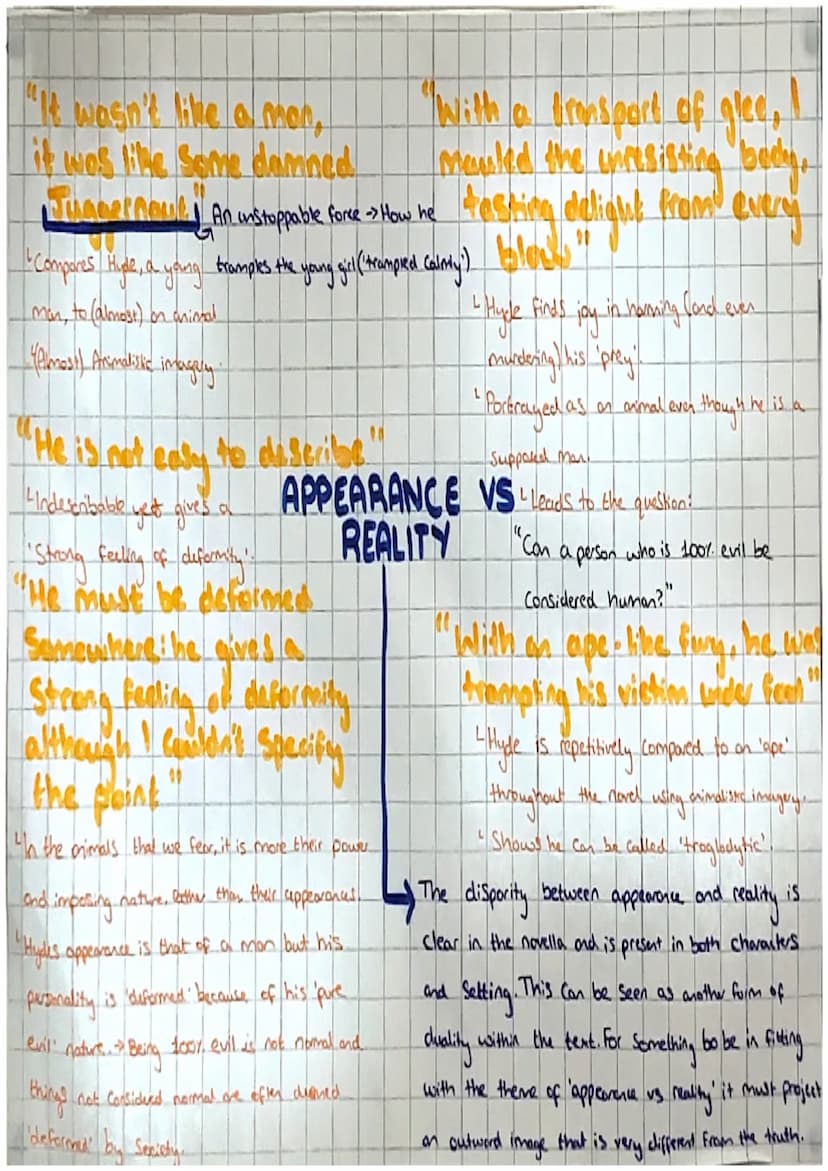 "It wasn't like a man,
it was like some damned
Juggernaut"
An unstoppable force → How he
tramples the young girl ('trampled calmly')
Compares Hyde, a young
man, to (almost) an animal
(Almost) Animalistic imagery.
"He is not easy to describe"
Indescribable yet gives a
'Strong feeling of deformity'.
"He must be deformed
somewhere: he gives a
strong feeling of deformity
although I couldn't specify
the point"
In the animals that we fear, it is more their power
and imposing nature, rather than their appearances.
Hydes appearance is that of a man but his
personality is 'deformed' because of his 'pure
evil' nature. → Being 100% evil is not normal and
things not considered normal are often deemed
'deformed' by society.
APPEARANCE VS
REALITY
"With a transport of glee, I
mauled the unresisting body,
tasting delight from every
blow"
Hyde finds joy in harming (and even
murdering) his 'prey'.
Portrayed as an animal even though he is a
supposed man.
Leads to the question:
"Can a person who is 100% evil be
considered human?"
"With an ape-like fury, he was
trampling his victim under foot"
Hyde is repetitively compared to an 'ape'
throughout the novel using animalistic imagery.
Shows he can be called 'troglodytic'.
The disparity between appearance and reality is
clear in the novella and is present in both characters
and setting. This can be seen as another form of
duality within the text. For something to be in fitting
with the theme of 'appearance vs reality' it must project
an outward image that is very different from the truth.